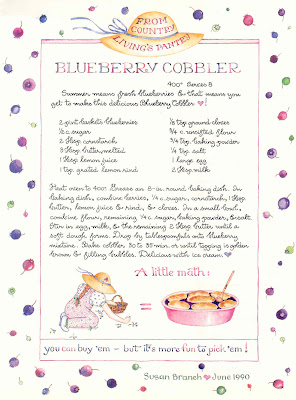 FROM COUNTRY
LIVING'S PANTRY
BLUEBERRY COBBLER
400° Serves 8
Summer means fresh blueberries & that means you
get to make this delicious Blueberry Cobbler ♥!
2 pint baskets blueberries
½ c. sugar
2 tbsp. cornstarch
3 tbsp. butter, melted
1 tbsp. lemon juice
1 tsp. grated lemon rind
⅛ tsp. ground cloves
¾ c. unsifted flour
¾ tsp. baking powder
¼ tsp. salt
1 large egg
2 tbsp. milk
Heat oven to 400°. Grease an 8-in. round baking dish. In
baking dish, combine berries, ¼ c. sugar, cornstarch, 1 tbsp.
butter, lemon juice & rind, & cloves. In a small bowl,
combine flour, remaining ¼ c. sugar, baking powder, & salt.
Stir in egg, milk, & the remaining 2 tbsp. butter until a
soft dough forms. Drop by tablespoonfuls onto blueberry
mixture. Bake cobbler 30 to 35 min. or until topping is golden
brown & filling bubbles. Delicious with ice cream ♥
A little math:
=
you can buy 'em – but it's more fun to pick 'em!
Susan Branch ♥ June 1990